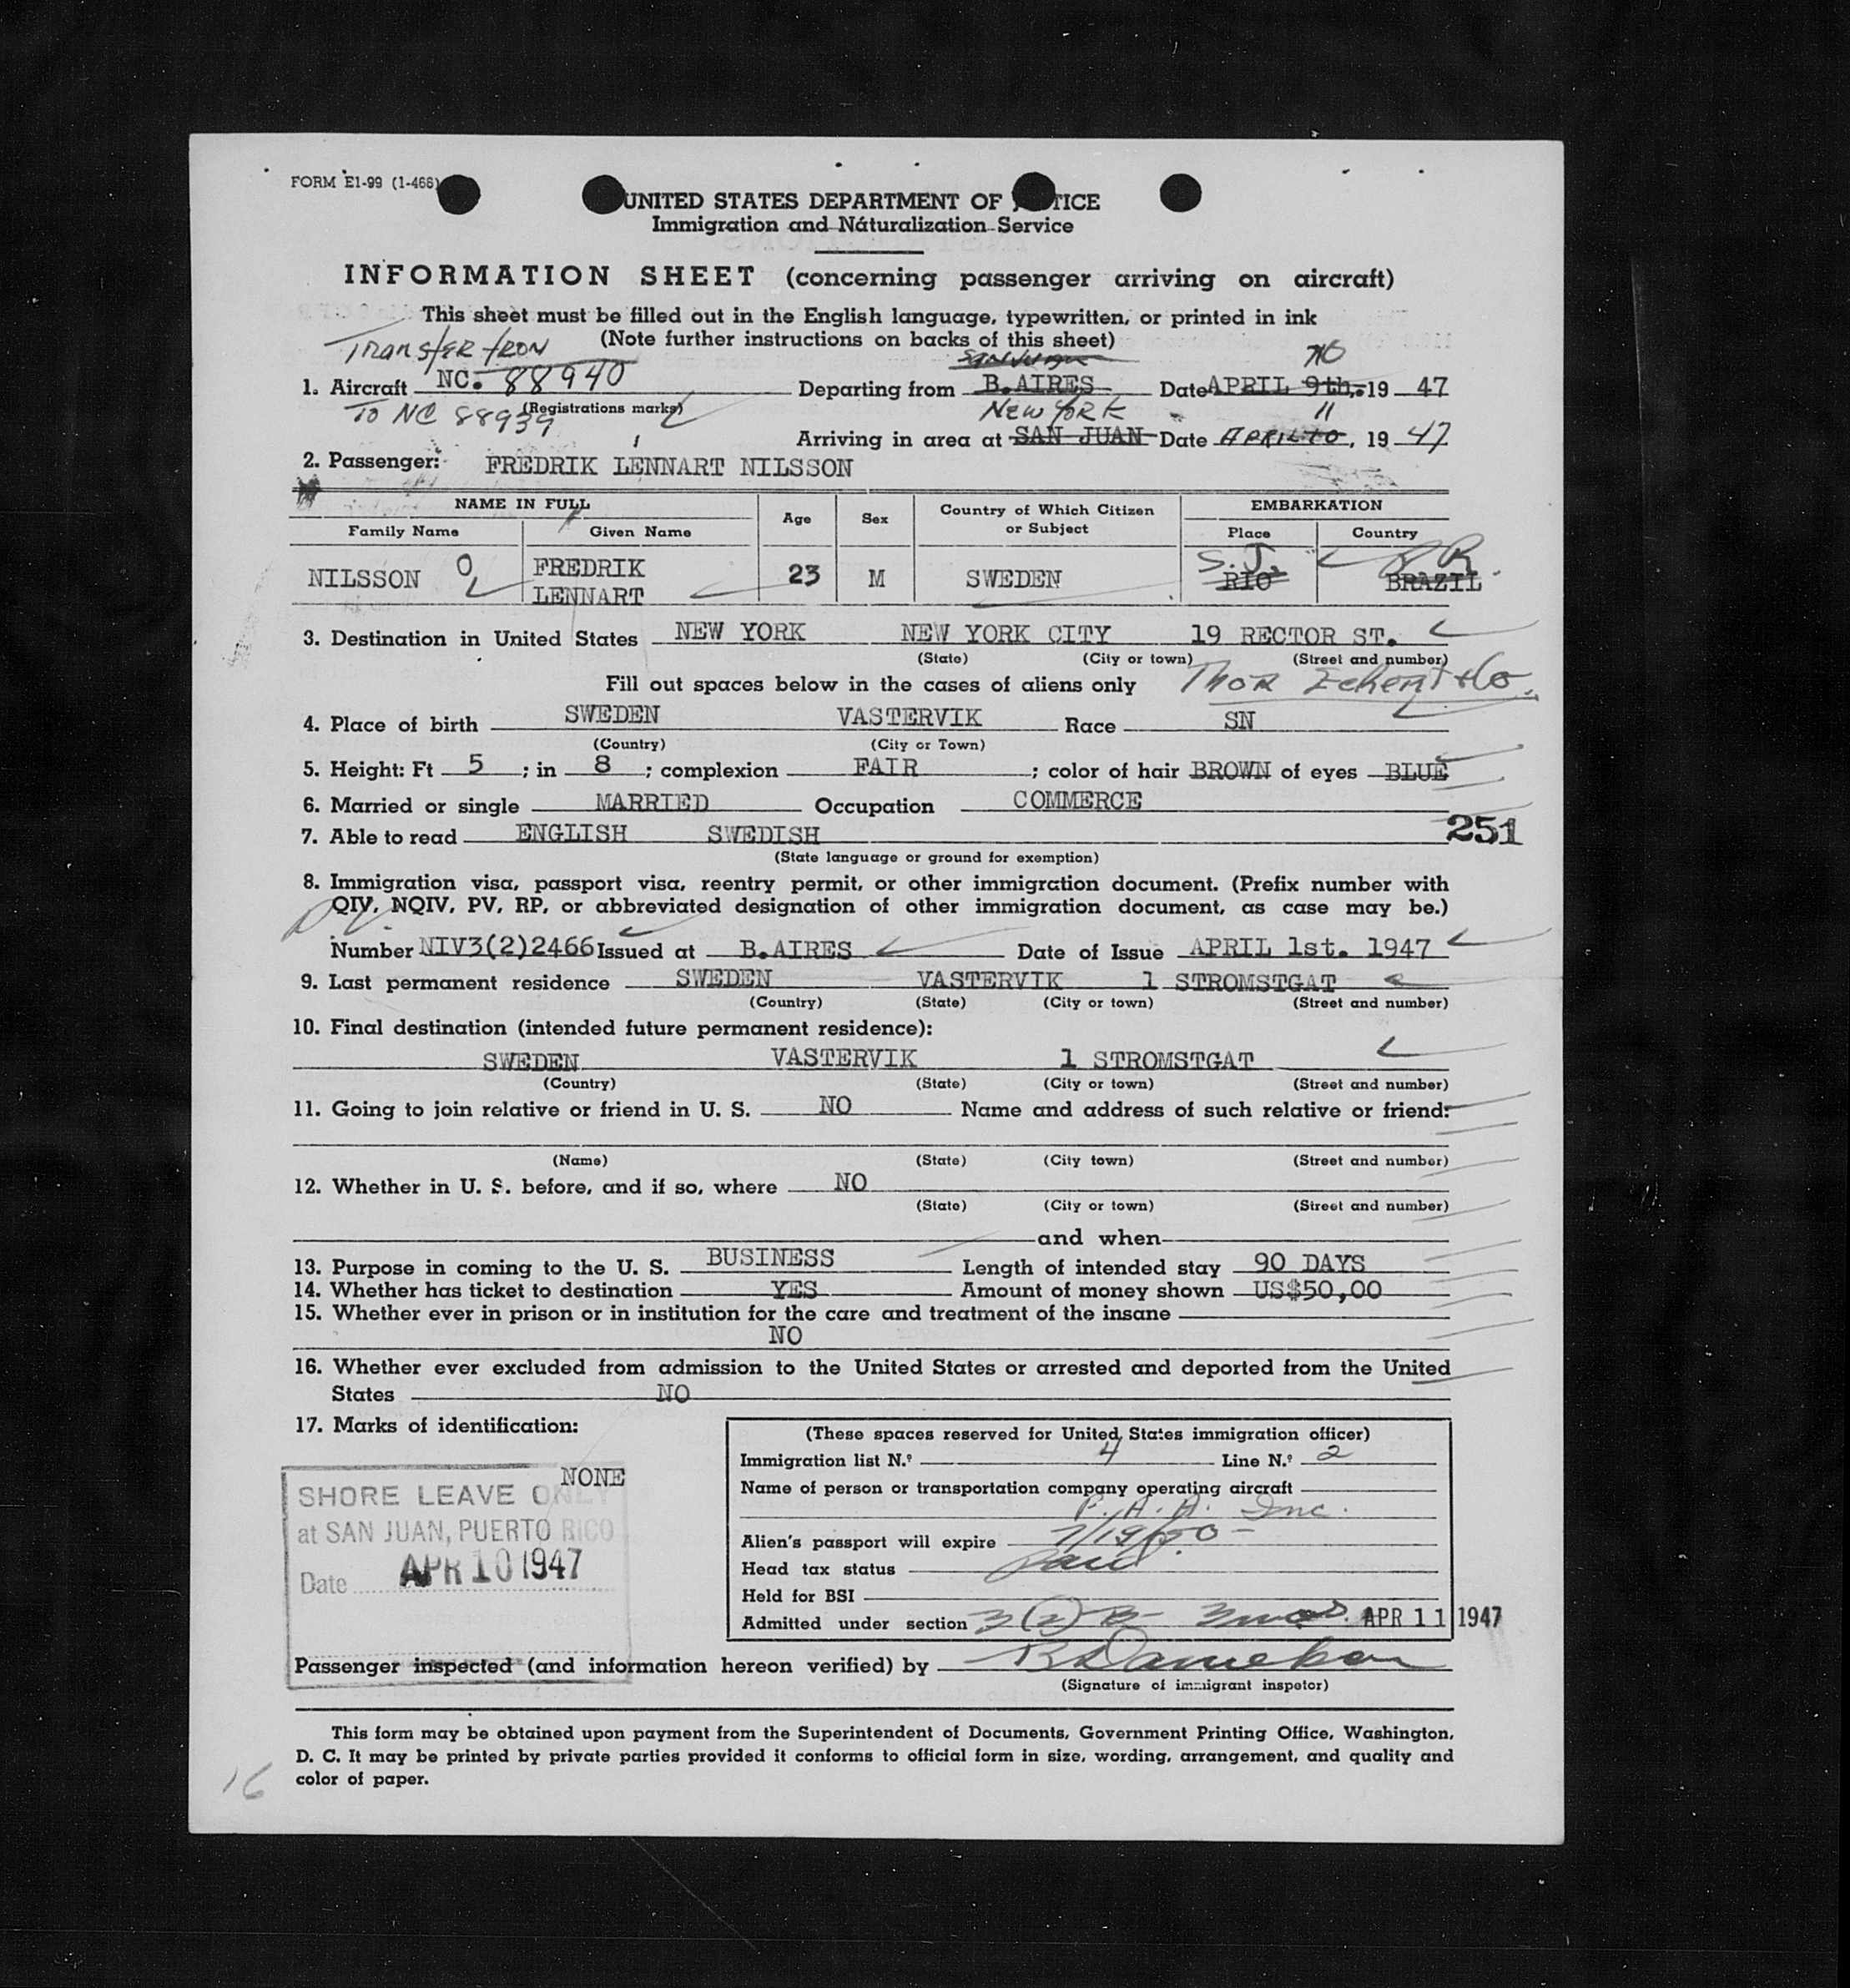 FORM E1-99 (1-466)
UNITED STATES DEPARTMENT OF TICE
Immigration and Naturalization Service
INFORMATION SHEET (concerning passenger arriving on aircraft)
This sheet must be filled out in the English language, typewritten, or printed in ink
(Note further instructions on backs of this sheet)
Transfer from
SAN JUAN 10
1. Aircraft NC. 88940 Departing from B.AIRES Date APRIL 9th, 19 47
(Registrations marks)
TO NC 88939 NEW YORK 11
Arriving in area at SAN JUAN Date APRIL 10, 19 47
2. Passenger: FREDRIK LENNART NILSSON
NAME IN FULL Age Sex Country of Which Citizen or Subject EMBARKATION
Family Name Given Name Place Country
S.J. P R
NILSSON FREDRIK LENNART 23 M SWEDEN RIO BRAZIL
3. Destination in United States NEW YORK NEW YORK CITY 19 RECTOR ST.
(State) (City or town) (Street and number)
Fill out spaces below in the cases of aliens only Thor & Co.
4. Place of birth SWEDEN VASTERVIK Race SN
(Country) (City or Town)
5. Height: Ft 5 ; in 8 ; complexion FAIR ; color of hair BROWN of eyes BLUE
6. Married or single MARRIED Occupation COMMERCE
7. Able to read ENGLISH SWEDISH 251
(State language or ground for exemption)
8. Immigration visa, passport visa, reentry permit, or other immigration document. (Prefix number with
QIV, NQIV, PV, RP, or abbreviated designation of other immigration document, as case may be.)
Number NIV3(2)2466 Issued at B.AIRES Date of Issue APRIL 1st. 1947
9. Last permanent residence SWEDEN VASTERVIK 1 STROMSTGAT
(Country) (State) (City or town) (Street and number)
10. Final destination (intended future permanent residence):
SWEDEN VASTERVIK 1 STROMSTGAT
(Country) (State) (City or town) (Street and number)
11. Going to join relative or friend in U. S. NO Name and address of such relative or friend:
(Name) (State) (City town) (Street and number)
12. Whether in U. S. before, and if so, where NO
(State) (City or town) (Street and number)
and when
13. Purpose in coming to the U. S. BUSINESS Length of intended stay 90 DAYS
14. Whether has ticket to destination YES Amount of money shown US$50,00
15. Whether ever in prison or in institution for the care and treatment of the insane
NO
16. Whether ever excluded from admission to the United States or arrested and deported from the United
States NO
17. Marks of identification:
NONE
SHORE LEAVE ONLY
at SAN JUAN, PUERTO RICO
Date APR 10 1947
(These spaces reserved for United States immigration officer)
Immigration list N.º 4 Line N.º 2
Name of person or transportation company operating aircraft
P. A. A. Inc.
Alien's passport will expire 7/19/50
Head tax status Paid
Held for BSI
Admitted under section 3(2) B- 3 mos. APR 11 1947
Passenger inspected (and information hereon verified) by
(Signature of immigrant inspetor)
This form may be obtained upon payment from the Superintendent of Documents, Government Printing Office, Washington,
D. C. It may be printed by private parties provided it conforms to official form in size, wording, arrangement, and quality and
color of paper.
16